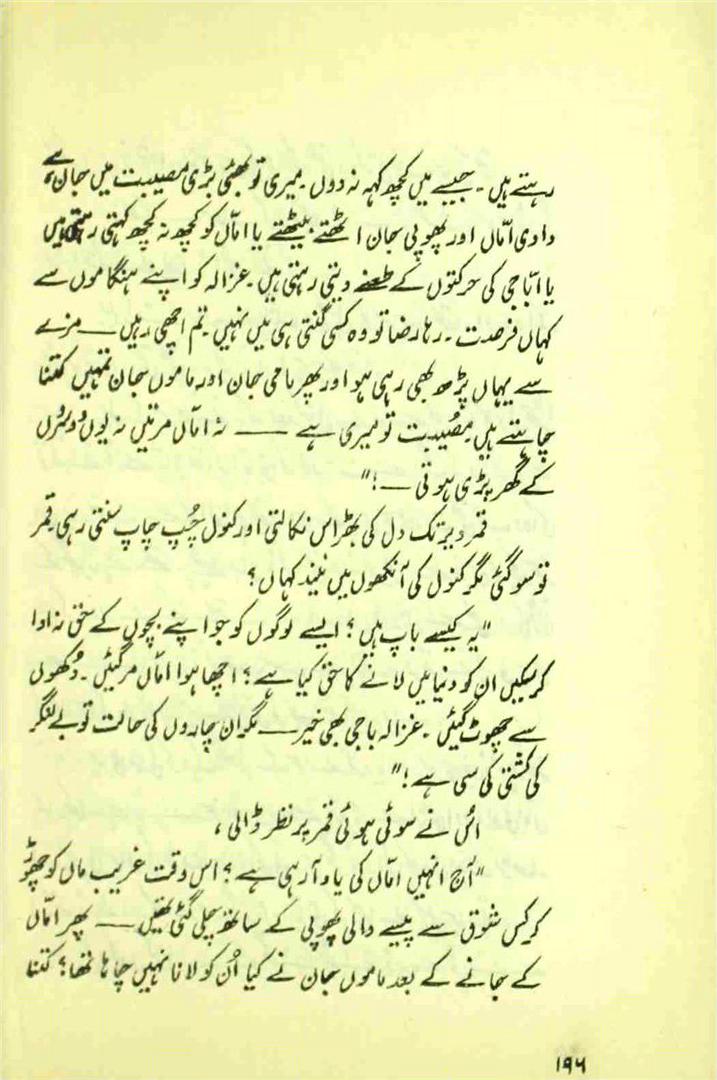 رہتے ہیں۔ جیسے میں کچھ کہہ نہ دوں۔ میری تو بھئی بڑی مصیبت میں جان ہے
دادی امّاں اور پھوپی جان اٹھتے بیٹھتے یا امّاں کو کچھ نہ کچھ کہتی رہتی ہیں
یا ابّاجی کی حرکتوں کے طعنے دیتی رہتی ہیں۔ غزالہ کو اپنے ہنگاموں سے
کہاں فرصت۔ رہا رضا تو وہ کسی گنتی ہی میں نہیں۔ تم اچھی رہیں —— مزے
سے یہاں پڑھ بھی رہی ہو اور پھر مامی جان اور ماموں جان تمہیں کتنا
چاہتے ہیں۔ مصُیبت تو میری ہے —— نہ امّاں مرتیں نہ یوں دوسروں
کے گھر پڑی ہوتی —!"
قمر دیر تک دل کی بھڑاس نکالتی اور کنول چُپ چاپ سنتی رہی۔ قمر
تو سو گئی مگر کنول کی آنکھوں میں نیند کہاں؟
"یہ کیسے باپ ہیں؟ ایسے لوگوں کو جو اپنے بچوں کے حق نہ ادا
کر سکیں ان کو دنیا میں لانے کا حق کیا ہے؟ اچھا ہوا امّاں مر گئیں۔ دُکھوں
سے چھوٹ گئیں۔ غزالہ باجی بھی خیر — مگر ان بچاروں کی حالت تو بے لنگر
کی کشتی کی سی ہے!"
اس نے سوئی ہوئی قمر پر نظر ڈالی،
"آج انہیں امّاں کی یاد آ رہی ہے؟ اس وقت غریب ماں کو چھوڑ
کر کس شوق سے پیسے والی پھوپی کے ساتھ چلی گئی تھیں —— پھر امّاں
کے جانے کے بعد ماموں جان نے کیا اُن کو لانا نہیں چاہا تھا؟ کتنا
۱۹۶